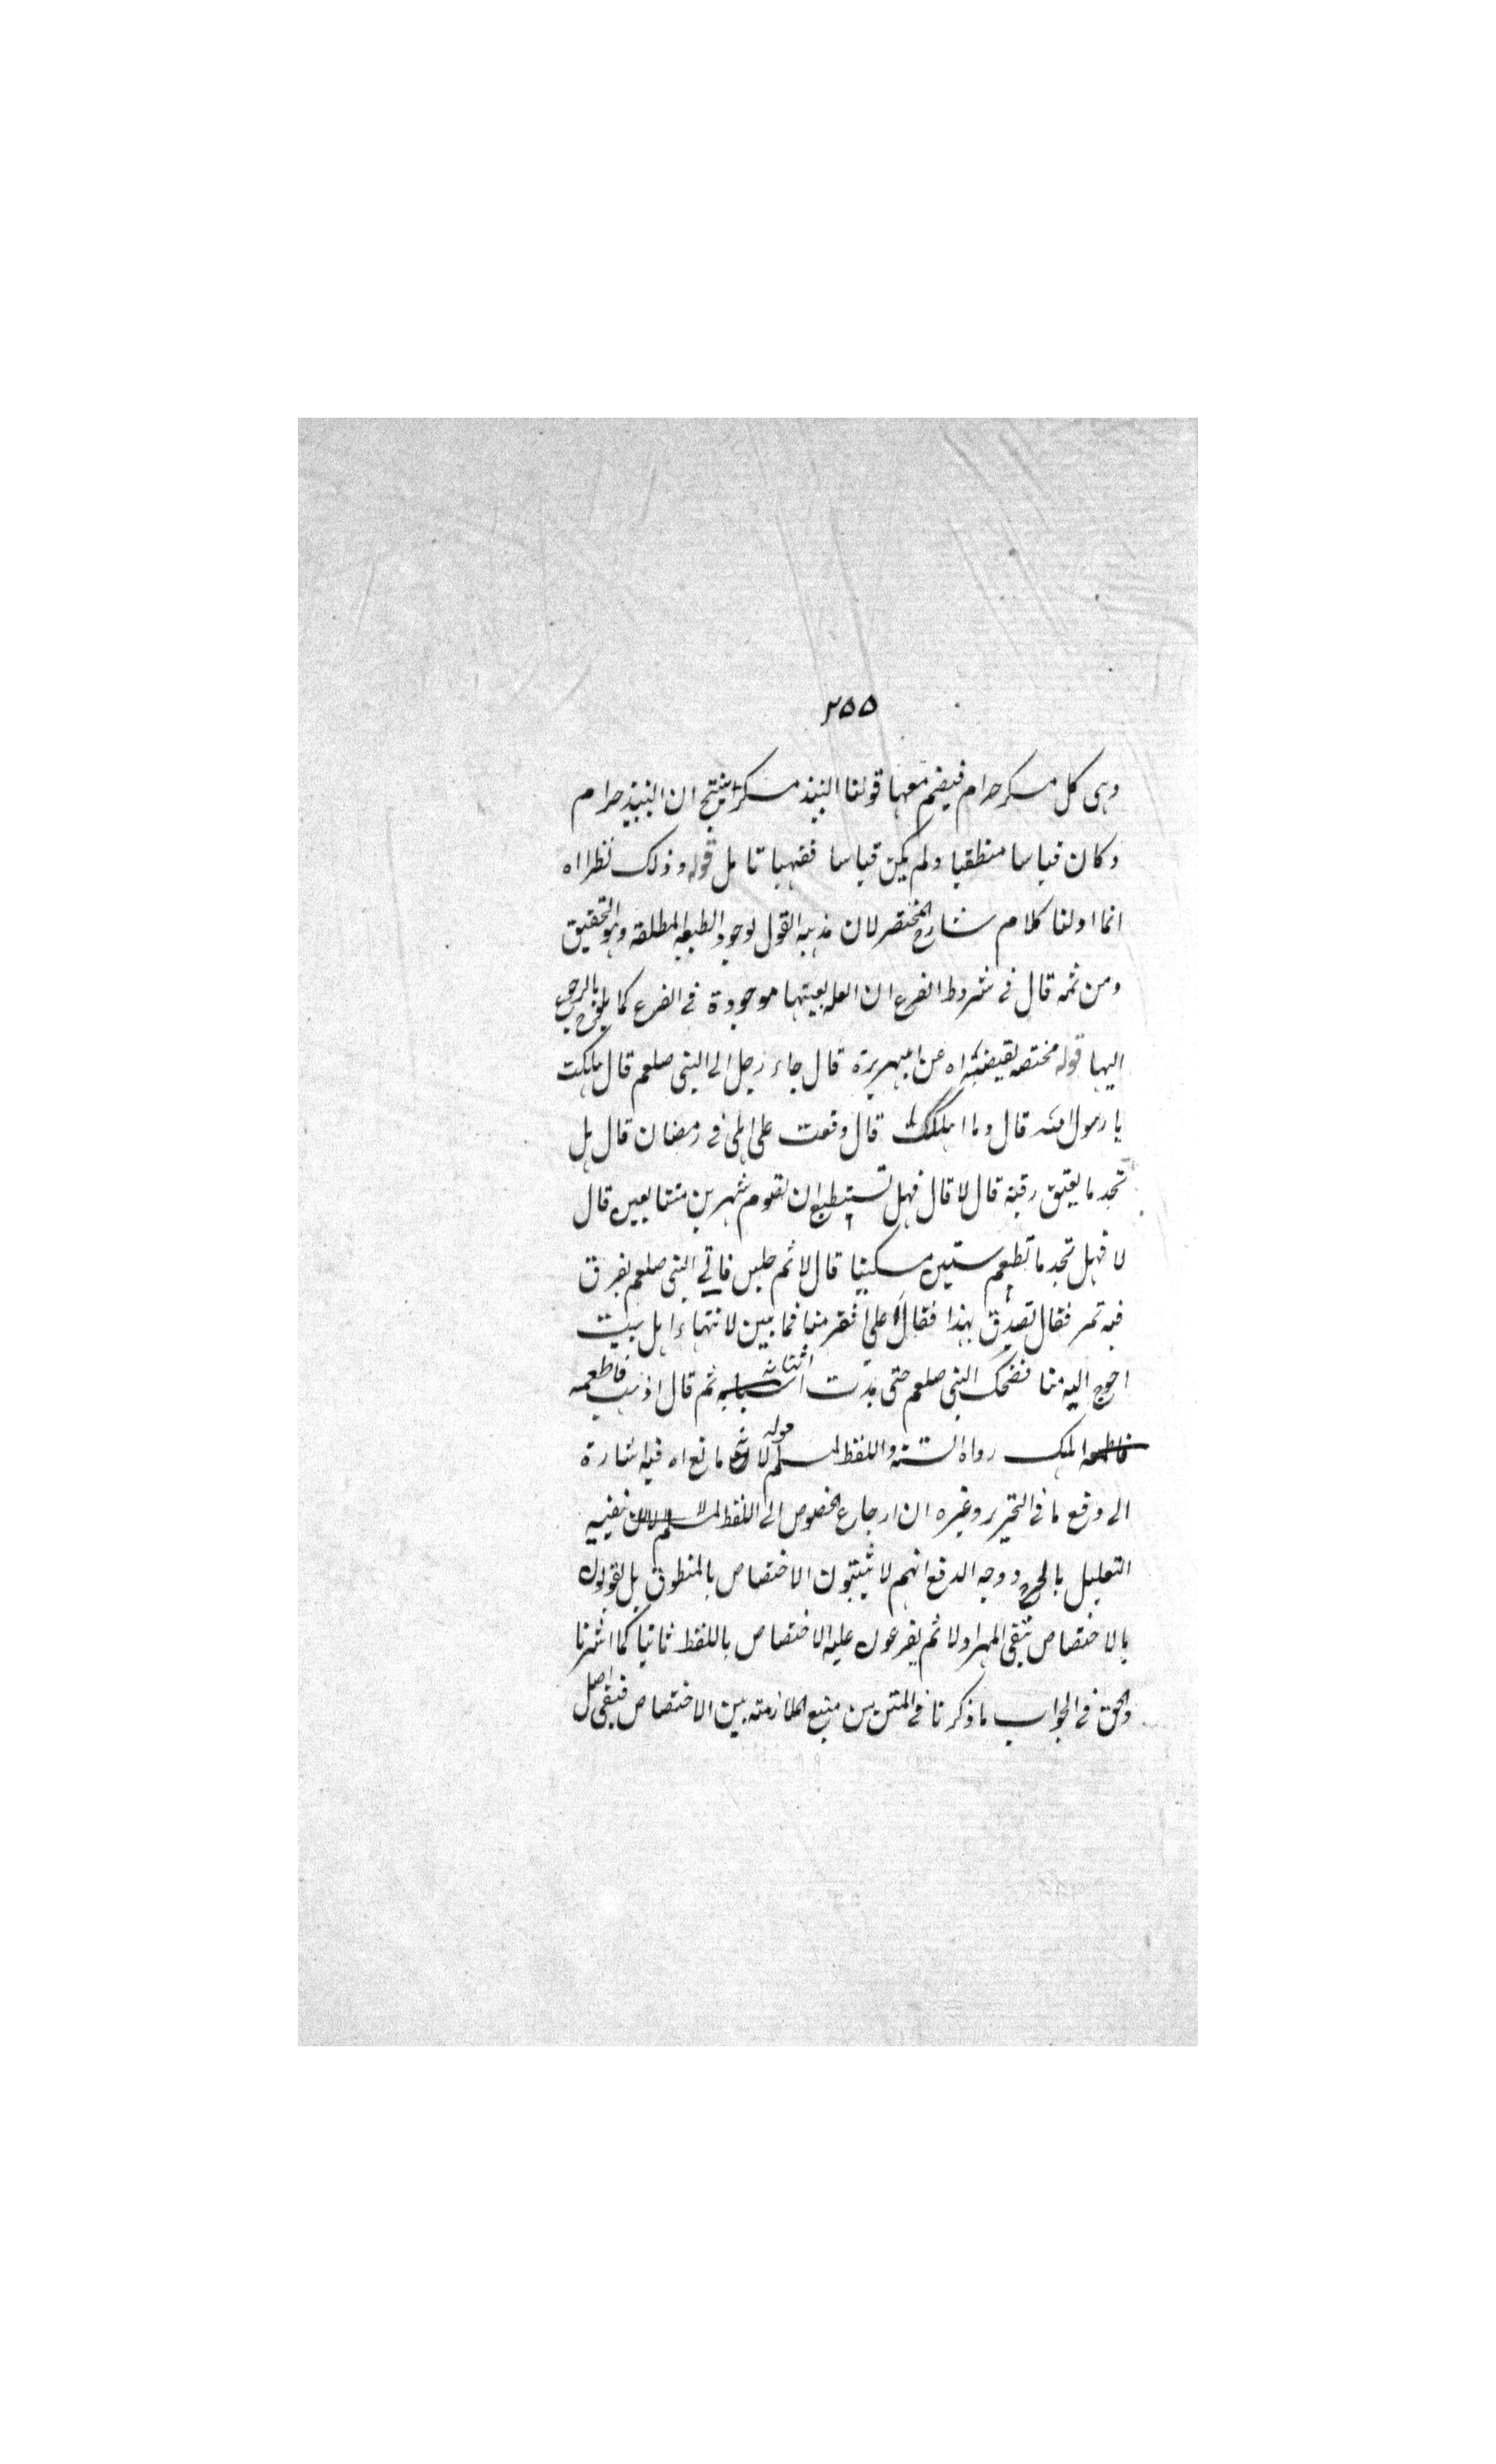 ٢٥٥
وهى كل مسكر حرام فيضم معها قولنا النبيذ مسكر ينتج ان النبيذ حرام
وكان قياسا منطقيا ولم يكن قياسا فقهيا تامل قوله وذلك نظرا اه
انما اولنا كلام شارح المختصر لان مذهبه القول لوجود الطبعه المطلقه وهو التحقيق
ومن ثمه قال فى شروط الفرع ان العله بعينها موجودة فى الفرع كما بالرجوع
اليها قوله مختصه بقيضته اه عن ابيهريرة قال جاء رجل الى النبى صلعم قال هلكت
يا رسول الله قال وما اهلكك قال وقعت على اهلى فى رمضان قال هل
تجد ما يعتق رقبة قال لا قال فهل تستطيع ان تصوم شهرين متتابعين قال
لا فهل تجد ما تطعم ستين مسكينا قال لا ثم جلس فاتي النبى صلعم بفرق
فيه تمر فقال تصدق بهذا فقال اعلى افقر منا فما بين لابتهاء اهل بيت
احوج اليه منا فضحك النبى صلعم حتى بدت انيابه ثم قال اذهب فاطعمه
اهلك رواه الستة واللفظ لمسلم قوله لا مانع اه فيه اشارة
الى دفع ما فى التحرير وغيره ان ارجاع الخصوص الى اللفظ ينفيه
التعليل بالحرج ووجه الدفع انهم لا يثبتون الاختصاص بالمنطوق بل يقولون
بالاختصاص بنفى المهر اولا ثم يفرعون عليه الاختصاص باللفظ ثانيا كما اشرنا
والحق فى الجواب ما ذكرنا فى المتن من منع الملازمته بين الاختصاص فنفى اصل